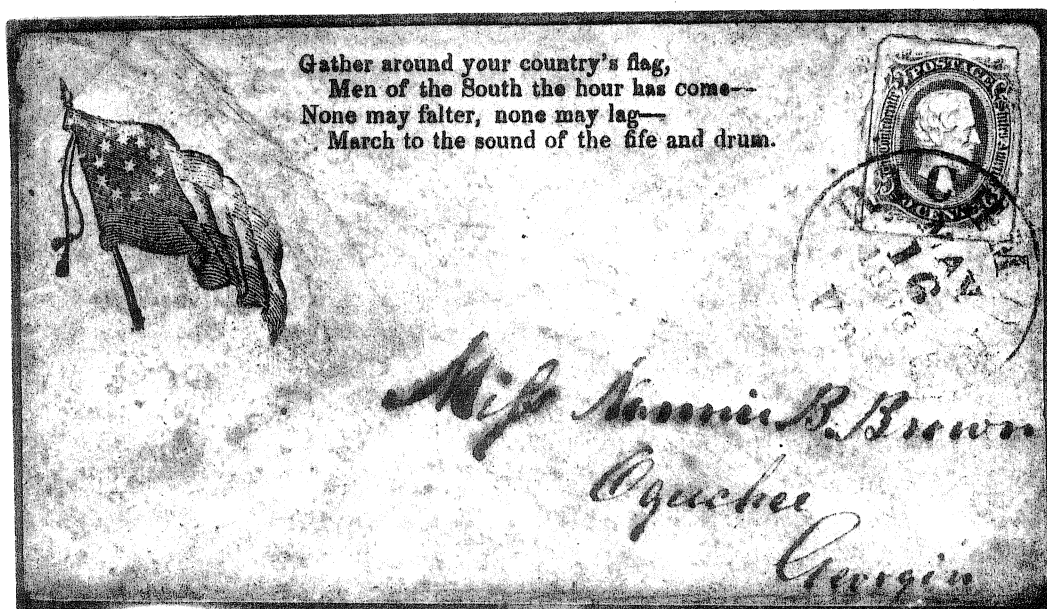 Gather around your country's flag,
Men of the South the hour has come—
None may falter, none may lag—
March to the sound of the fife and drum.
POSTAGE
MAY
16
Miss Nannie B. Brown
Oguchee
Georgia